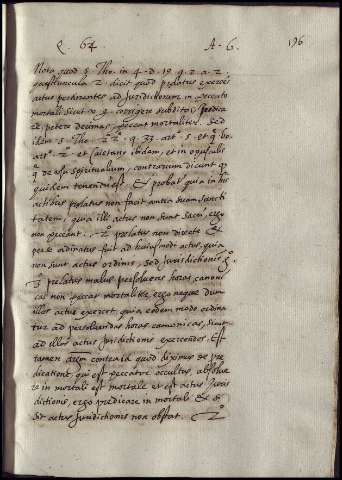 Q. 64. A. 6. 196
Nota quod S. Tho. in 4. d. 19 q. 2. a. 2.
quæstiuncula 2ª dicit quod prelatus exercēs
actus pertinentes ad Juridictionem in peccato
mortali sicut corrigere subditos predica
re, petere decimas, peccant mortaliter. Sed
idem S. Tho. 2ª 2ę q. 33 artº 5. et q. 60.
artº 2. et Caietanus ibidem, et in opusculis
q. de usu spiritualium, contrarium dicunt qd
quidem tenendum est. Et probatur quia in his
actibus prelatus non facit contra suam sancti
tatem, quia illi actus non sunt sacri, ergo
non peccant. 2º prelatus non directe
fuit ad huiusmodi actus, quia
non sunt actus ordinis, sed Jurisdictionis
3º prelatus malus persoluens horas canoni
cas non peccat mortaliter, ergo neque dum
illos actus exercet, quia eodem modo ordina
tur ad persoluendas horas canonicas, sicut
ad illos actus juridictionis exercendos. Est
tamen contra id quod diximus de pre
dicatione, qui est peccator occultus, absolue
re in mortali est mortale et est actus Juris
dictionis, ergo predicare in mortali
Et actus Juridictionis non obstat.